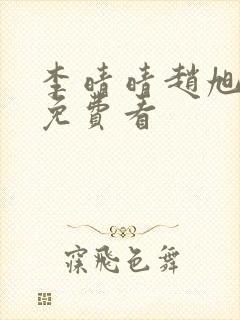 李晴晴趙旭
免費看
寐飛色舞